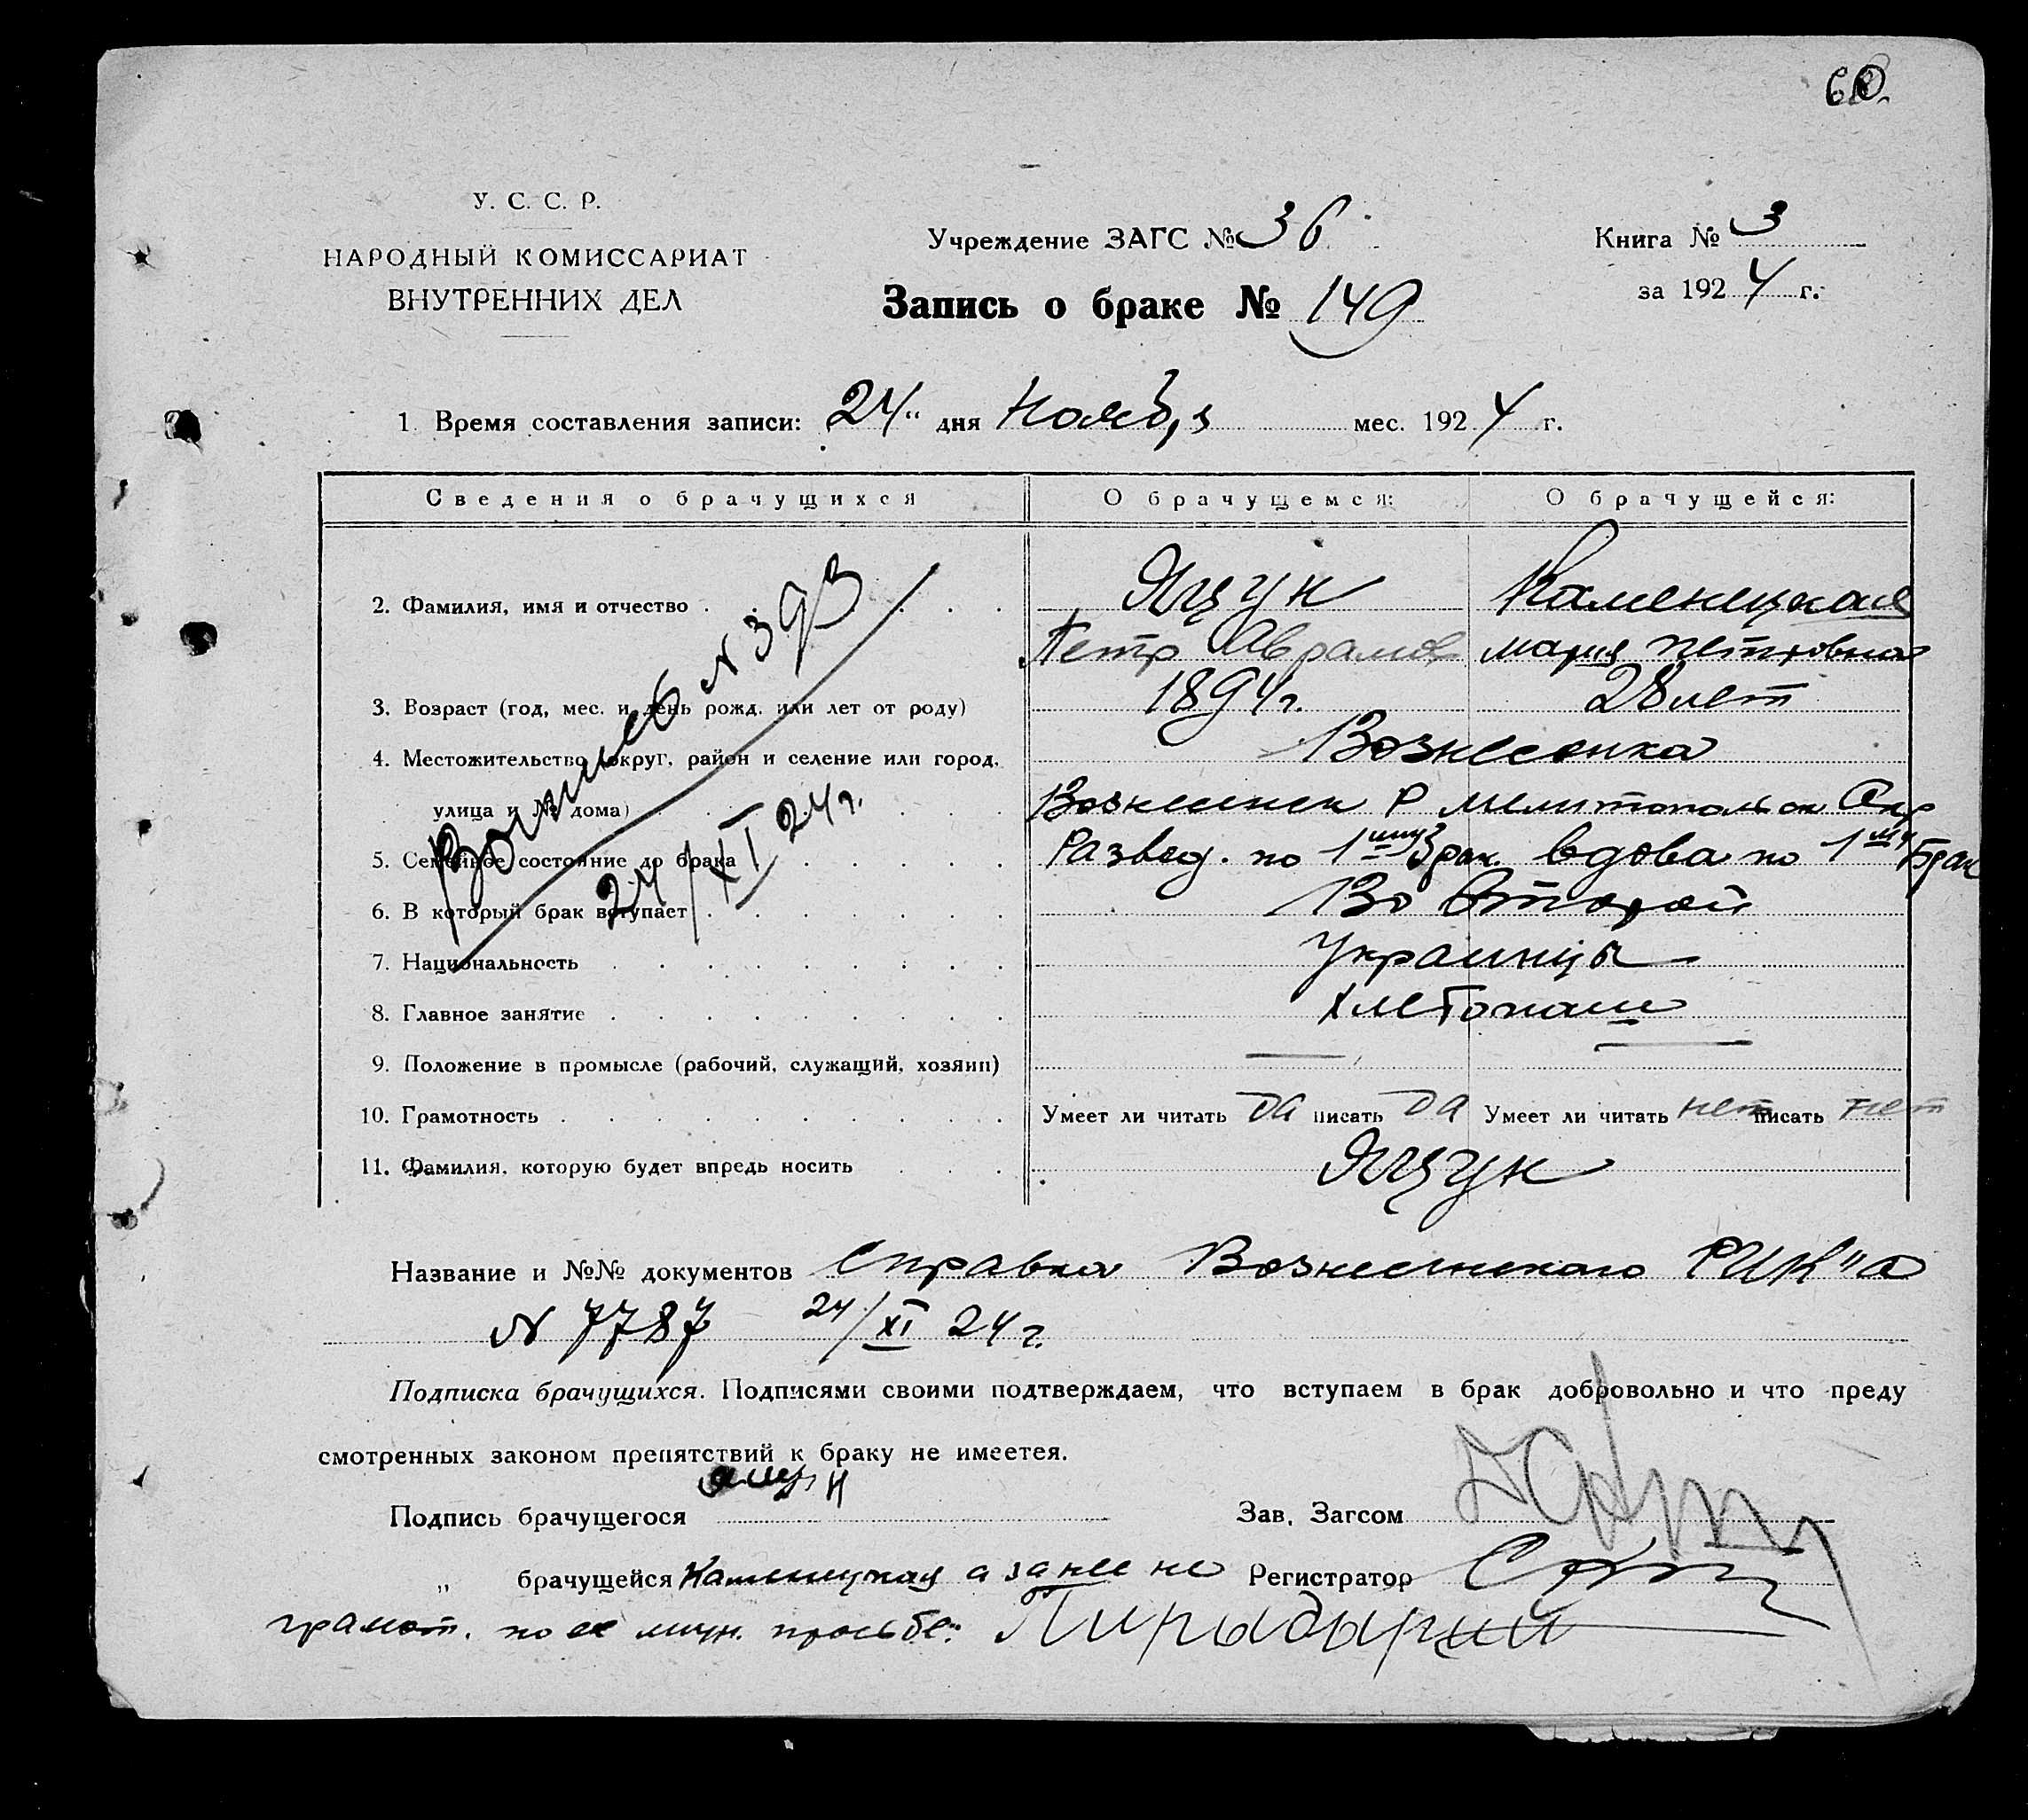 60.
У. С. С. Р.
НАРОДНЫЙ КОМИССАРИАТ
ВНУТРЕННИХ ДЕЛ
Учреждение ЗАГС № 36
Запись о браке № 149
Книга № 3
за 1924 г.
1 Время составления записи: 24 " дня Нояб, я мес. 1924 г.
Сведения о брачущихся О брачущемся: О брачущейся:
2. Фамилия, имя и отчество Ящук Каменецкая
Петр Аврамов Мария Петровна
3. Возраст (год, мес. и день рожд. или лет от роду) 1894 г. 28 лет
4. Местожительство (округ, район и селение или город, Вознесенка
улица и № дома) Вознесенск Р Мелитопольск Окр
5. Семейное состояние до брака Развед. по 1му Брак. вдова по 1му Брак
6. В который брак вступает Во Второй
7. Национальность Украинцы
8. Главное занятие Хлебопаш
9. Положение в промысле (рабочий, служащий, хозяин)
10. Грамотность Умеет ли читать да писать да Умеет ли читать нет писать нет
11. Фамилия, которую будет впредь носить Ящук
N 393
24/XI 24 г.
Название и №№ документов Справка Вознесенского РИК"а
N 7787 24/XI 24 г.
Подписка брачущихся. Подписями своими подтверждаем, что вступаем в брак добровольно и что преду
смотренных законом препятствий к браку не имеетея.
Подпись брачущегося Ящук Зав. Загсом
„ брачущейся Каменецкая а за нее не Регистратор
грамот. по ее личн. просьбе: